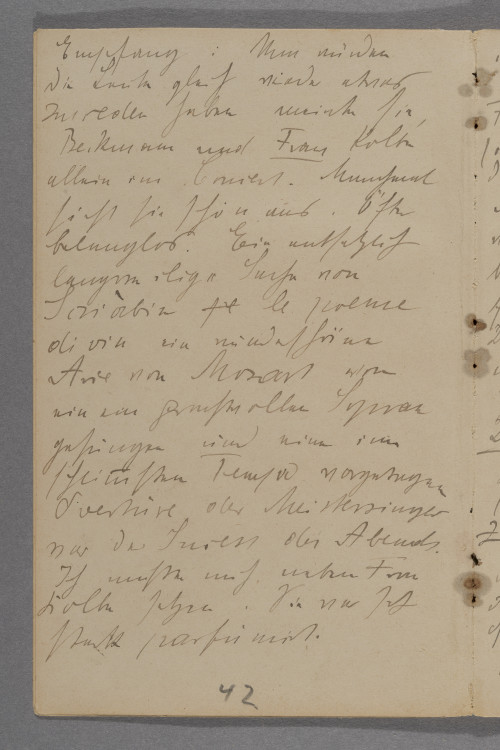 Empfang : Nun würden
die Leute gleich wieder etwas
zureden haben meinte sie,
Beckmann und Frau Kolbe
allein im Concert. Manchmal
sieht sie schön aus. Öfter
belanglos. Ein entsetzlich
langweilige Sache von
Scriàbin le poeme
divin ein wunderschöne
Arie von Mozart von
einem geruchvollen Sopran
gesungen und eine im
Tempo vorgetragen
Overtüre der Meistersinger
war der Inhalt des Abends.
Ich mußte mich neben Frau
Kolbe setzen. Sie war sehr
stark parfümirt.
42